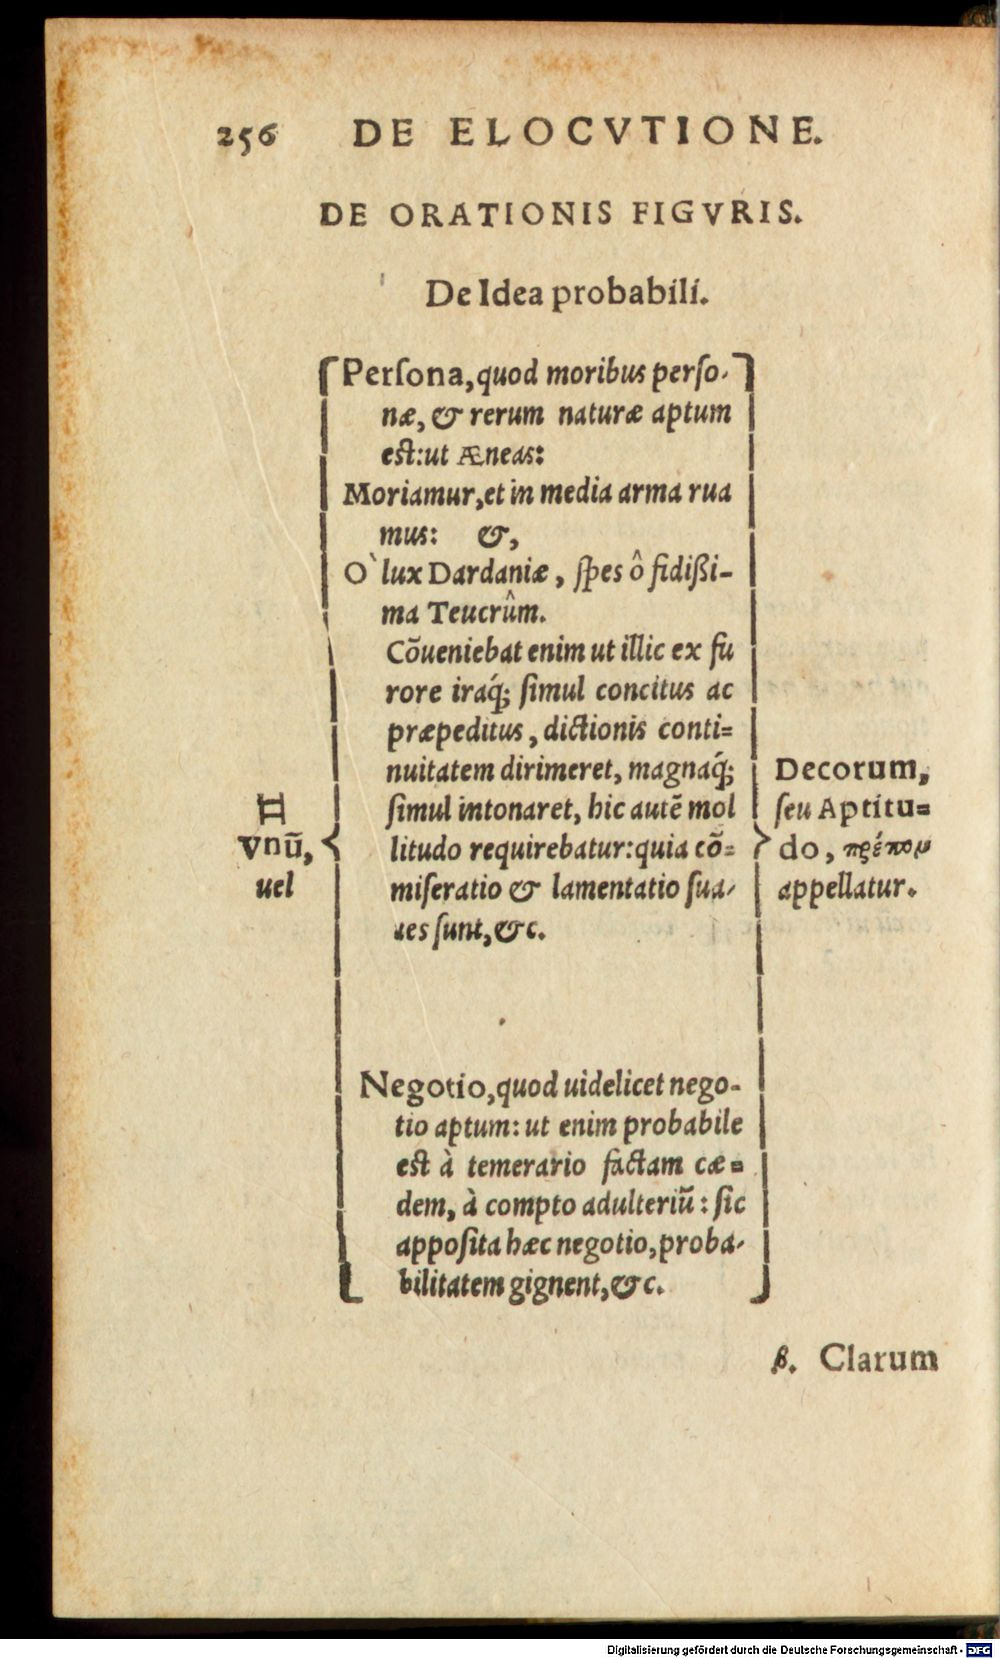 256 DE ELOCVTIONE.
DE ORATIONIS FIGVRIS.
De Idea probabili.
Perſona, quod moribus perſo-
næ, & rerum naturæ aptum
eſt: ut Æneas:
Moriamur, et in media arma rua
mus: &,
O` lux Dardaniæ, ſpes ô fidißi-
ma Teucrûm.
Cōueniebat enim ut illic ex fu
rore iraq́; ſimul concitus ac
præpeditus, dictionis conti=
nuitatem dirimeret, magnaq́;
ſimul intonaret, hic autē mol
litudo requirebatur: quia cō=
miſeratio & lamentatio ſua-
ues ſunt, &c.
Negotio, quod uidelicet nego-
tio aptum: ut enim probabile
eſt à temerario factam cæ=
dem, à compto adulteriū: ſic
appoſita hæc negotio, proba-
bilitatem gignent, &c.
Vnū,
uel
Decorum,
ſeu Aptitu=
do, πρέπον
appellatur.
β. Clarum
Digitalisierung gefördert durch die Deutsche Forschungsgemeinschaft - DFG